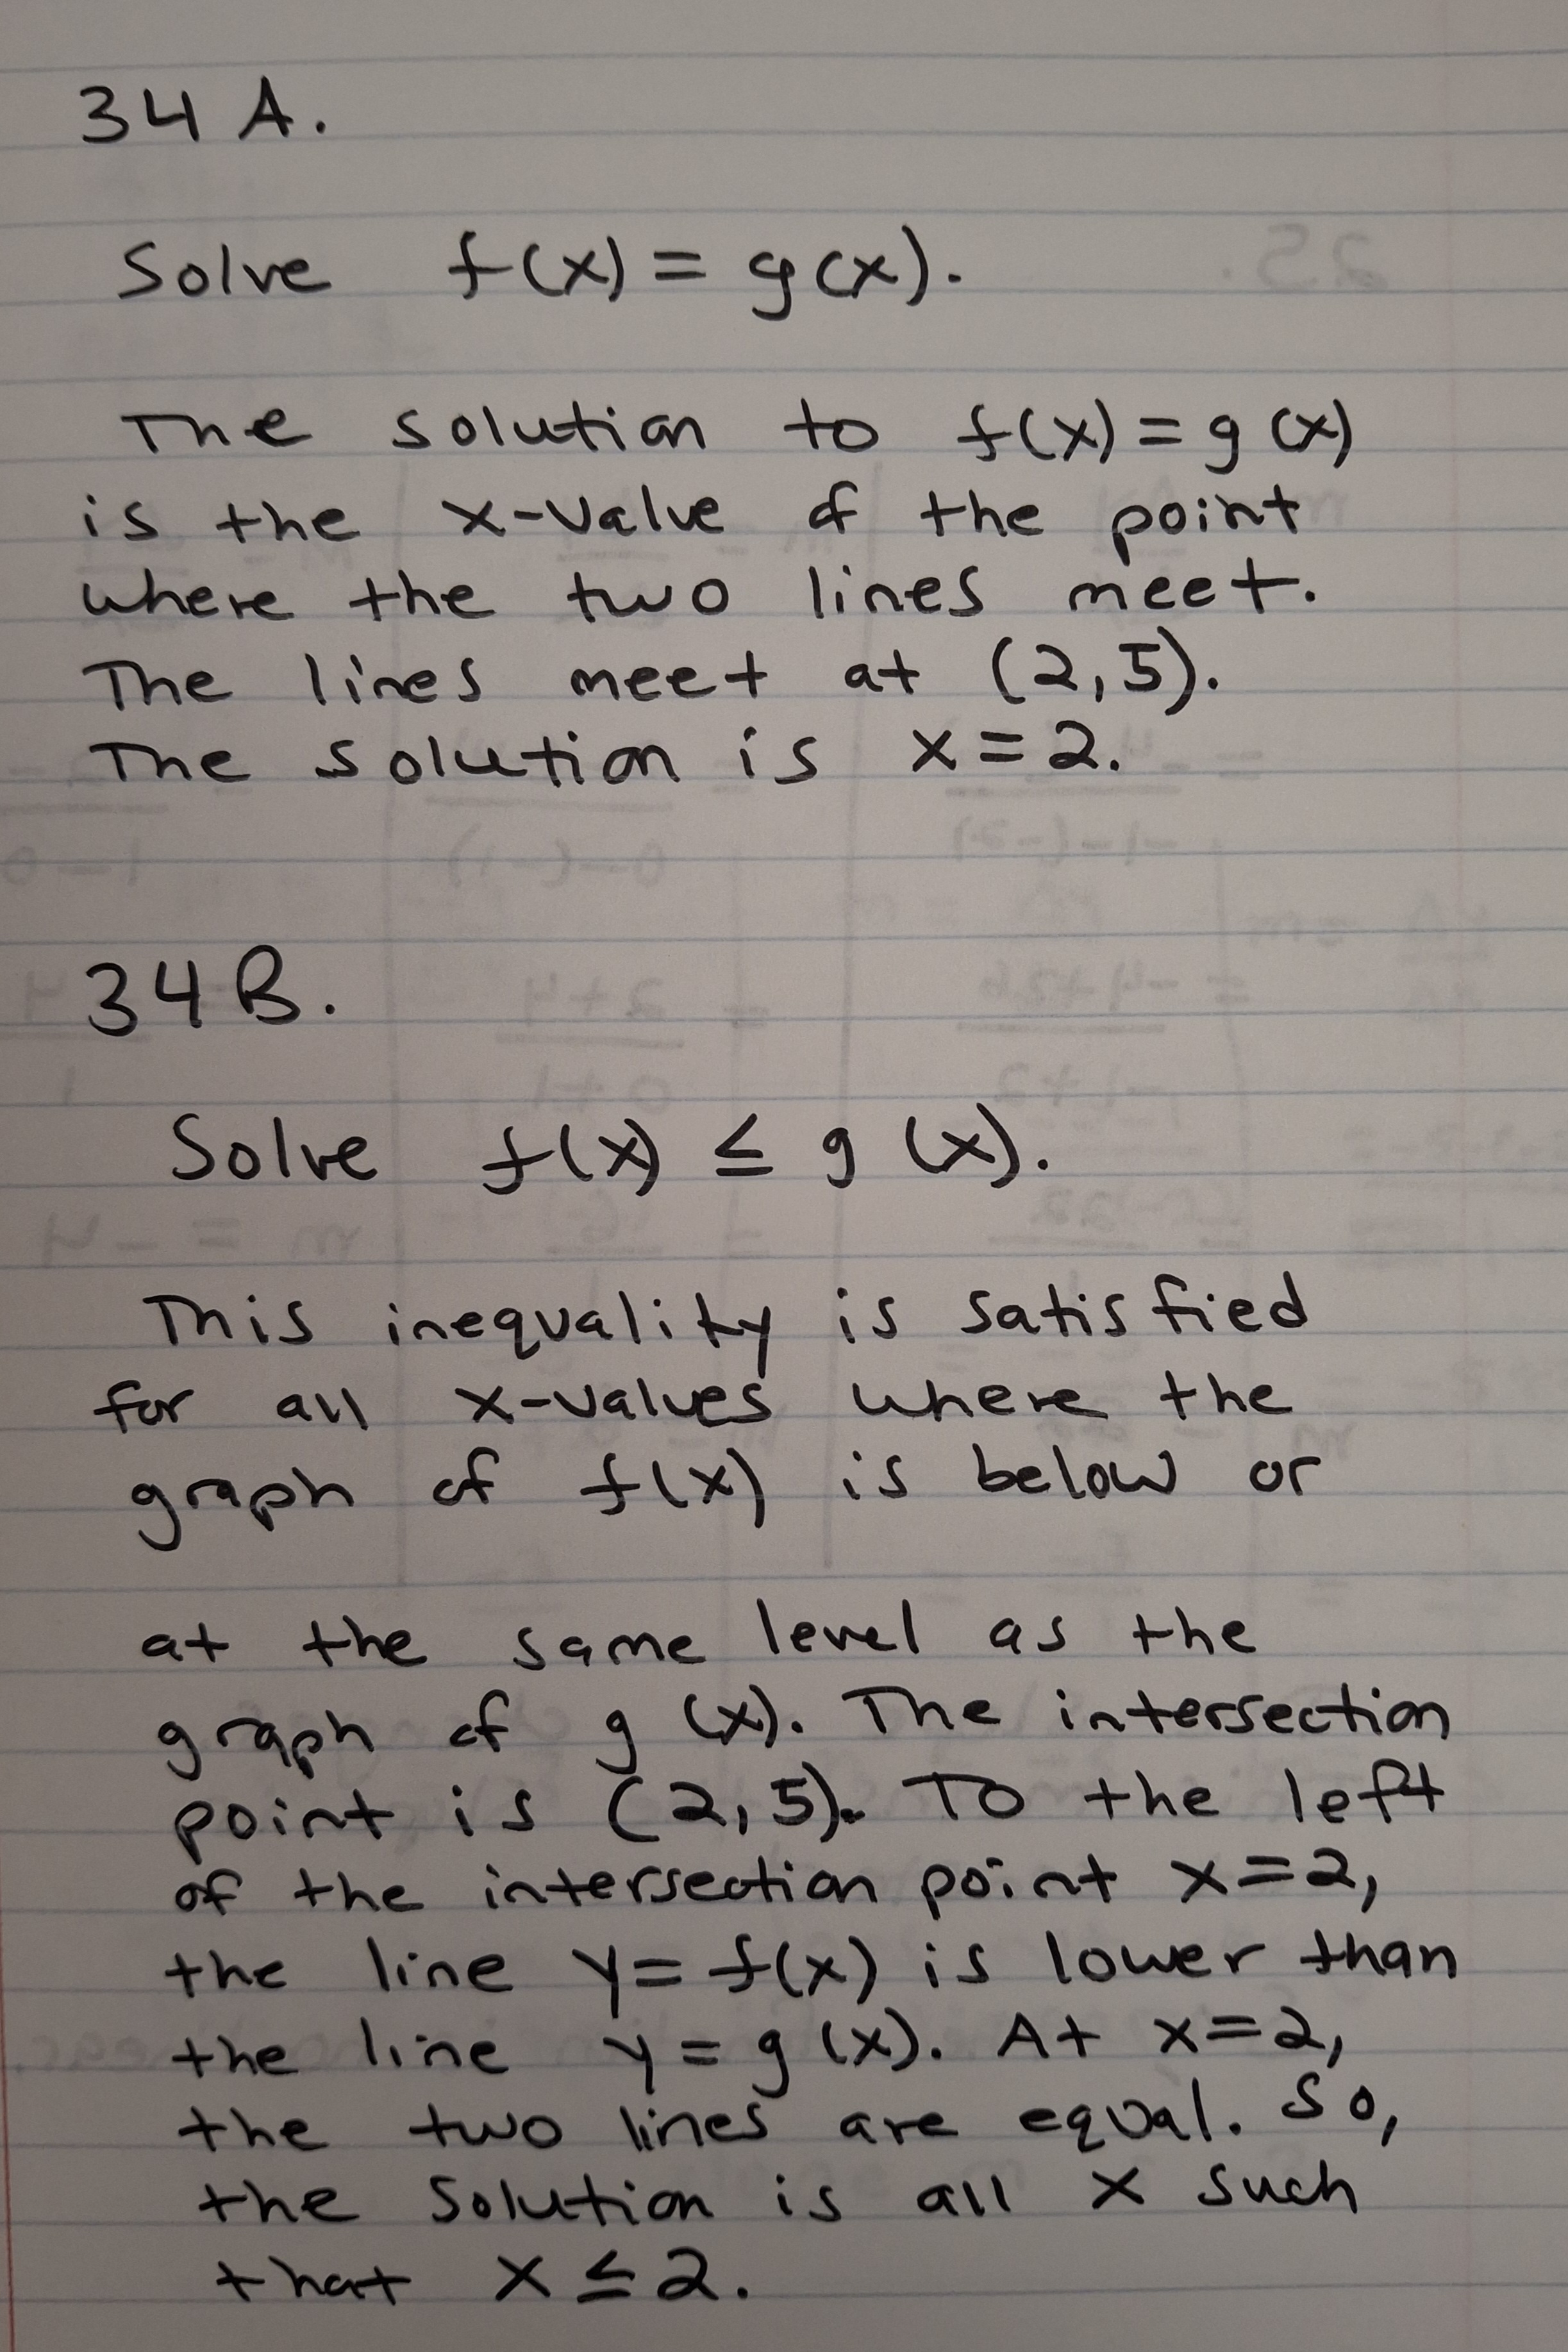 34 A.
Solve f(x) = g(x).
The solution to f(x) = g(x)
is the x-value of the point
where the two lines meet.
The lines meet at (2,5).
The solution is x = 2.
34 B.
Solve f(x) ≤ g(x).
This inequality is satisfied
for all x-values where the
graph of f(x) is below or
at the same level as the
graph of g(x). The intersection
point is (2,5). To the left
of the intersection point x = 2,
the line y = f(x) is lower than
the line y = g(x). At x = 2,
the two lines are equal. So,
the solution is all x such
that x ≤ 2.